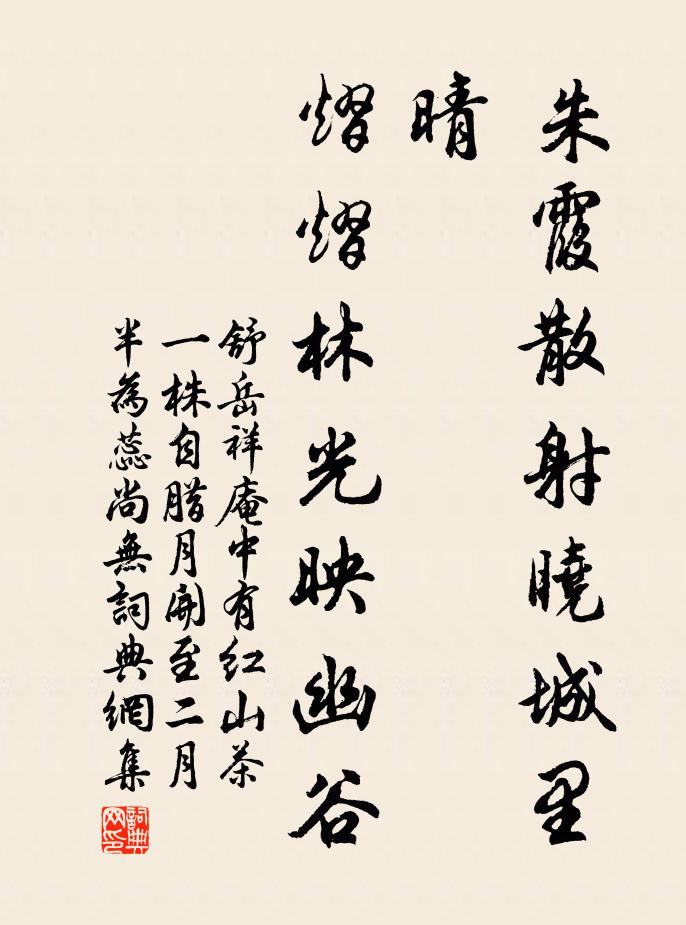 朱霞散射曉城里
晴
熠熠林光映幽谷
舒岳祥庵中有紅山茶
一株自腊月開至二月
半為蕊尚無詞典網集
詞典
网印